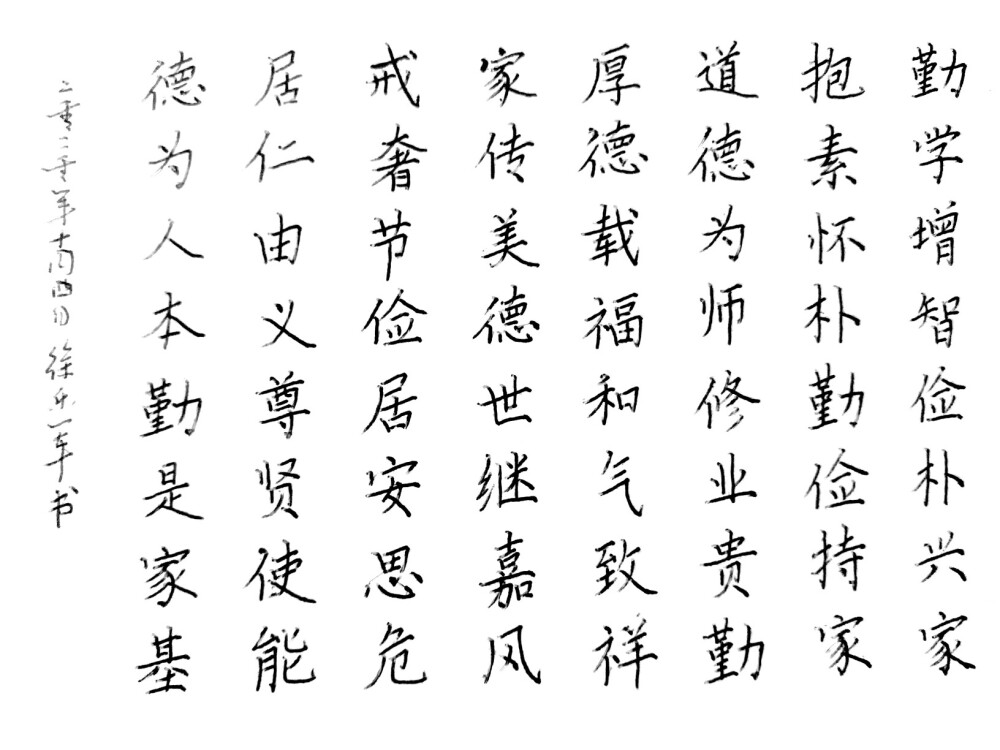 勤学增智俭朴兴家
抱素怀朴勤俭持家
道德为师修业贵勤
厚德载福和气致祥
家传美德世继嘉风
戒奢节俭居安思危
居仁由义尊贤使能
德为人本勤是家基
二零二零年十月四日徐乐一车书